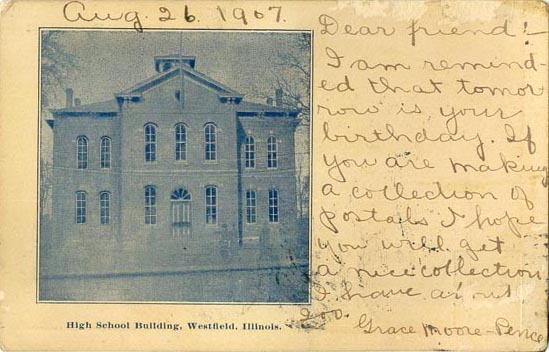 Aug. 26 1907.
Dear friend:-
I am remind-
ed that tomor
row is your
birthday. If
you are making
a collection of
postals I hope
you will get
a nice collection
I have about
200.
Grace Moore-Pence
High School Building, Westfield, Illinois.